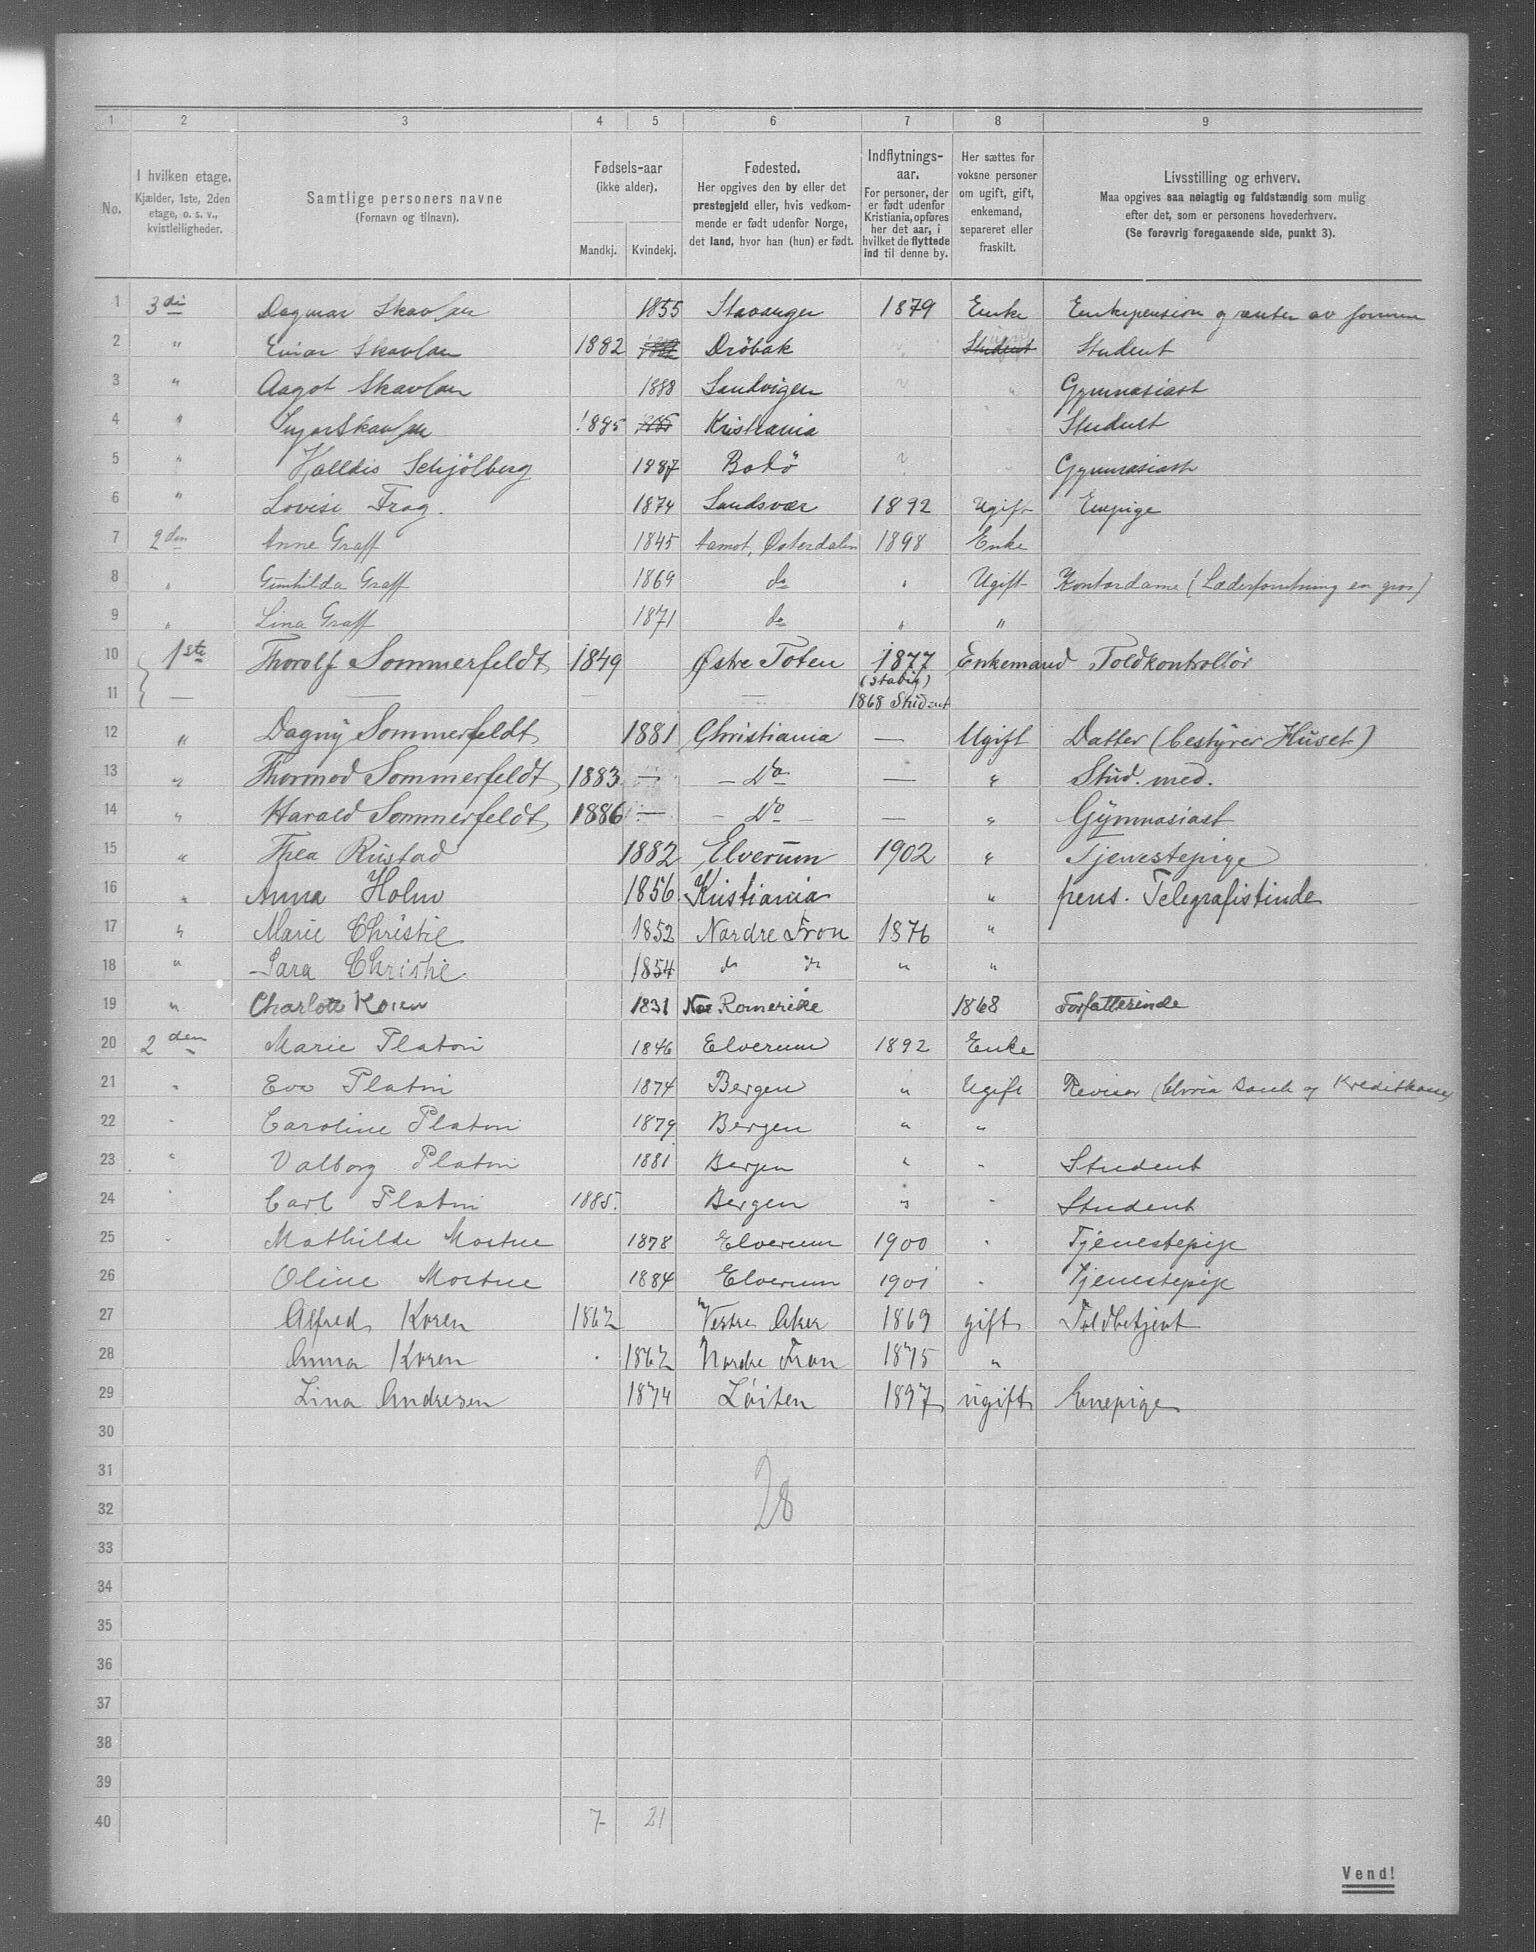 1 2 3 4 5 6 7 8 9
No.
I hvilken etage.
Kjælder, 1ste, 2den
etage, o. s. v.,
kvistleiligheder.
Samtlige personers navne
(Fornavn og tilnavn).
Fødsels-aar
(ikke alder).
Mandkj. Kvindekj.
Fødested.
Her opgives den by eller det
prestegjeld eller, hvis vedkom-
mende er født udenfor Norge,
det land, hvor han (hun) er født.
Indflytnings-
aar.
For personer, der
er født udenfor
Kristiania, opføres
her det aar, i
hvilket de flyttede
ind til denne by.
Her sættes for
voksne personer
om ugift, gift,
enkemand,
separeret eller
fraskilt.
Livsstilling og erhverv.
Maa opgives saa nøiagtig og fuldstændig som mulig
efter det, som er personens hovederhverv.
(Se forøvrig foregaaende side, punkt 3).
1 3die Dagmar Skavlan 1855 Stavanger 1879 Enke Enkepension og renter av formue
2 " Einar Skavlan 1882 Drøbak Student Student
3 " Aagot Skavlan 1888 Sandvigen " Gymnasiast
4 " Ingar Skavlan 1885 Kristiania Student
5 " Halldis Schjölberg 1887 Bodö Gymnasiast
6 " Lovise Frog. 1874 Sandsvær 1892 Ugift Enepige
7 2den Anne Graff 1845 Aamot, Østerdalen 1898 Enke
8 " Gunhilda Graff 1869 do " Ugift Kontordame (Læderforretning en gros)
9 " Lina Graff 1871 do " "
10 1ste Thorolf Sommerfeldt 1849 Østre Toten 1877 Enkemand Toldkontrollør
(stadig)
11 — — — — 1868 Student
12 " Dagny Sommerfeldt 1881 Christiania — Ugift Datter (bestyrer Huset)
13 " Thormod Sommerfeldt 1883 — — Do — " Stud. med.
14 " Harald Sommerfeldt 1886 — — Do — — " Gymnasiast
15 " Thea Rustad 1882 Elverum 1902 " Tjenestepige
16 " Anna Holm 1856 Kristiania " pens. Telegrafistinde
17 " Marie Christie 1852 Nordre Fron 1876 "
18 " Sara Christie 1854 do do " "
19 " Charlotte Koren 1831 Romerike 1868 Forfatterinde
20 2den Marie Platou 1846 Elverum 1892 Enke
21 " Eva Platou 1874 Bergen " Ugift Revisor (Chria Bank og Kreditkasse)
22 " Caroline Platou 1879 Bergen " "
23 " Valborg Platou 1881 Bergen " " Student
24 " Carl Platou 1885. Bergen " " Student
25 " Mathilde Mostue 1878 Elverum 1900 " Tjenestepige
26 Oline Mostue 1884 Elverum 1901 " Tjenestepige
27 Alfred Koren 1862 Vestre Aker 1869 gift Toldbetjent
28 Anna Koren 1862 Nordre Fron 1875 "
29 Lina Andresen 1874 Löiten 1897 ugift Enepige
30
31
32 28
33
34
35
36
37
38
39
40 7 21
Vend!